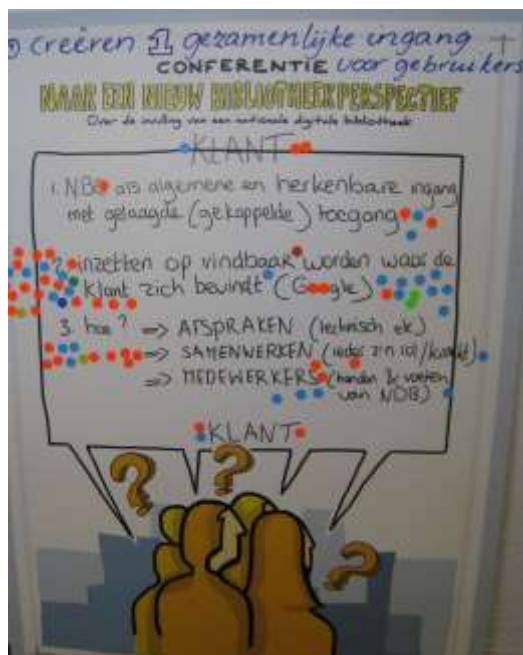 creëren 1 gezamenlijke ingang
CONFERENTIE voor gebruikers
NAAR EEN NIEUW BIBLIOTHEEKPERSPECTIEF
Over de invulling van een nationale digitale bibliotheek
KLANT
1. NB als algemene en herkenbare ingang
met gelaagde (gekoppelde) toegang
2. inzetten op vindbaar worden waar de
klant zich bevindt (Google)
3. hoe? => AFSPRAKEN (technisch etc)
=> SAMENWERKEN (ieder z'n rol/
=> MEDEWERKERS (handen & voeten
van NDB)
KLANT
? ? ?